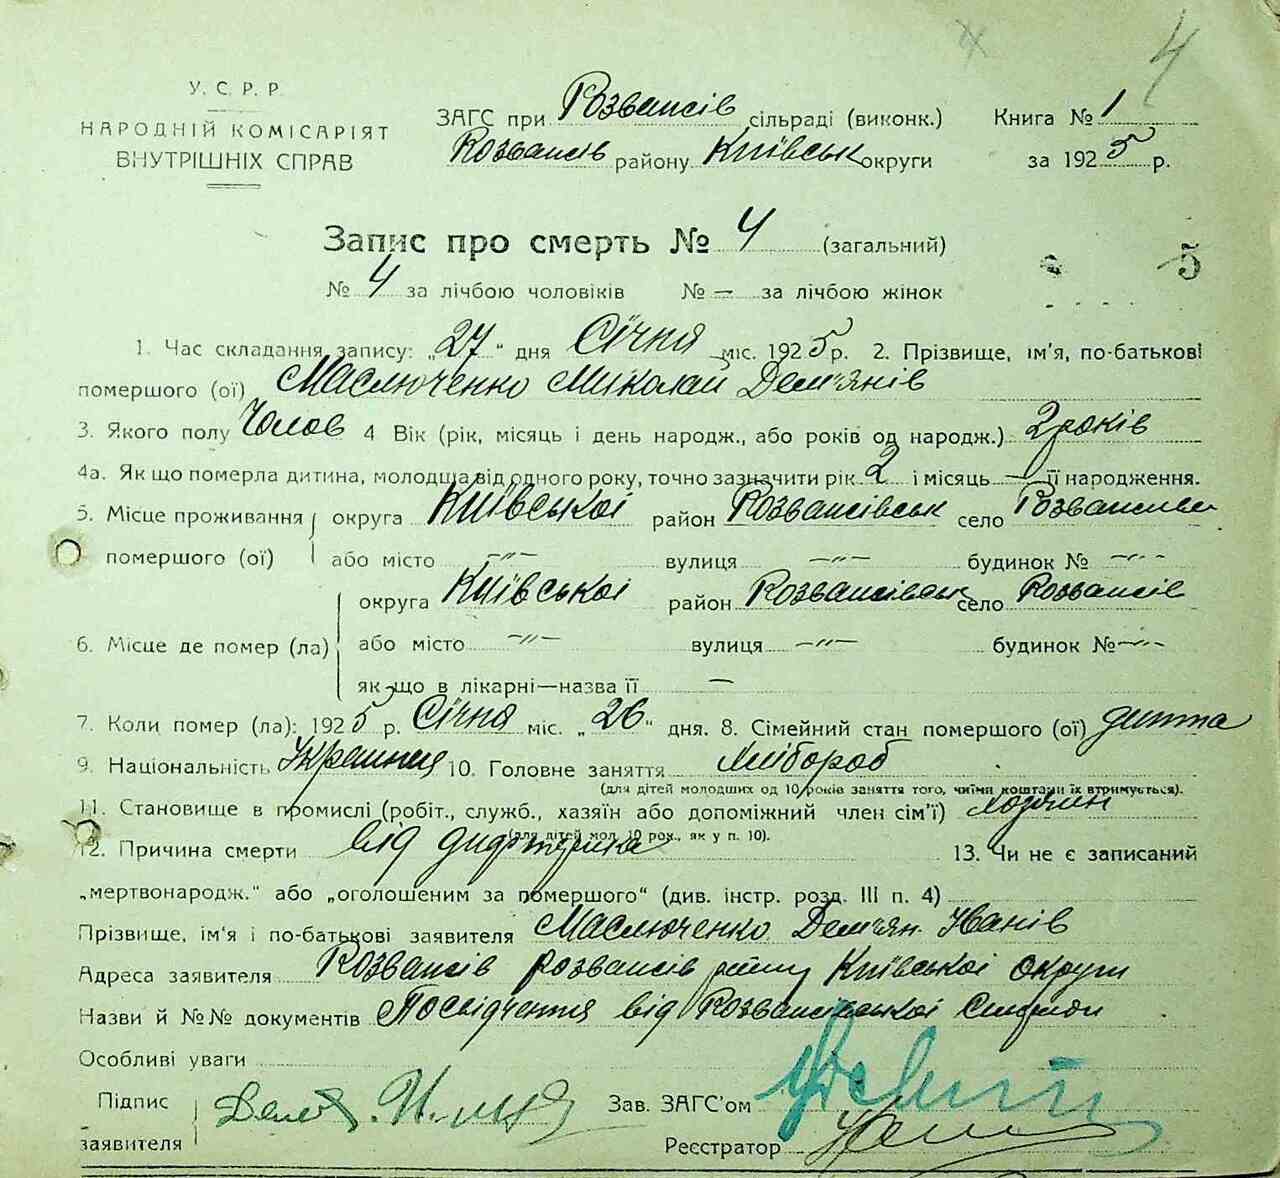 4
У. С. Р. Р.
НАРОДНІЙ КОМІСАРІЯТ
ВНУТРІШНІХ СПРАВ
ЗАГС при Розважів сільраді (виконк.) Книга № 1
Розважів району Київськ округи за 1925 р.
Запис про смерть № 4 (загальний)
5
№ 4 за лічбою чоловіків № — за лічбою жінок
1. Час складання запису: „27“ дня Січня міс. 1925 р. 2. Прізвище, ім'я, по-батькові
помершого (ої) Маслюченко Миколай Дем'янів
3. Якого полу Чолов 4 Вік (рік, місяць і день народж., або років од народж.) 2 років
4а. Як що померла дитина, молодща від одного року, точно зазначити рік 2 і місяць — її народження.
5. Місце проживання округа Київської район Розважівськ село
помершого (ої) або місто —"— вулиця —"— будинок № —"—
округа Київської район Розважівськ село Розважів
6. Місце де помер (ла) або місто —"— вулиця —"— будинок № —"—
як що в лікарні—назва її —
7. Коли помер (ла): 1925 р. Січня міс. „26“ дня. 8. Сімейний стан помершого (ої) дитта
9. Національність 10. Головне заняття Хлібороб
(для дітей молодших од 10 років заняття того, чиїми коштами їх втримується).
11. Становище в промислі (робіт., служб., хазяїн або допоміжний член сім'ї) хозяин
(для дітей мол. 10 рок., як у п. 10).
12. Причина смерти від 13. Чи не є записаний
„мертвонародж.“ або „оголошеним за помершого“ (див. інстр. розд. III п. 4)
Прізвище, ім'я і по-батькові заявителя Маслюченко Дем'ян Іванів
Адреса заявителя Розважів розважів рйну Київської округи
Назви й №№ документів Посвідчення від Розважівської
Особливі уваги
Підпис
Зав. ЗАГС'ом
заявителя
Реєстратор